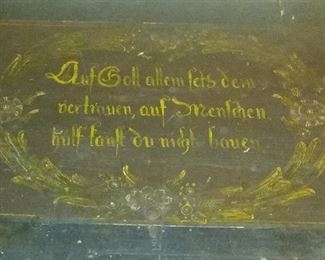 Auf Gott allein sets dein
vertrauen, auf Menschen
hülf kanst du nicht bauen